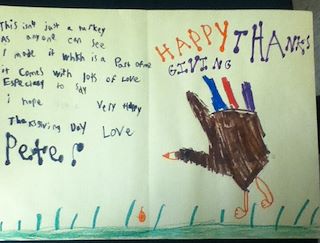 This isn't just a turkey
As anyone can see
I made it which is a Part of me
it comes with lots of Love
Especially to say
I hope very Happy
Thanksgiving Day Love
Peter
HAPPY THANKS
GIVING